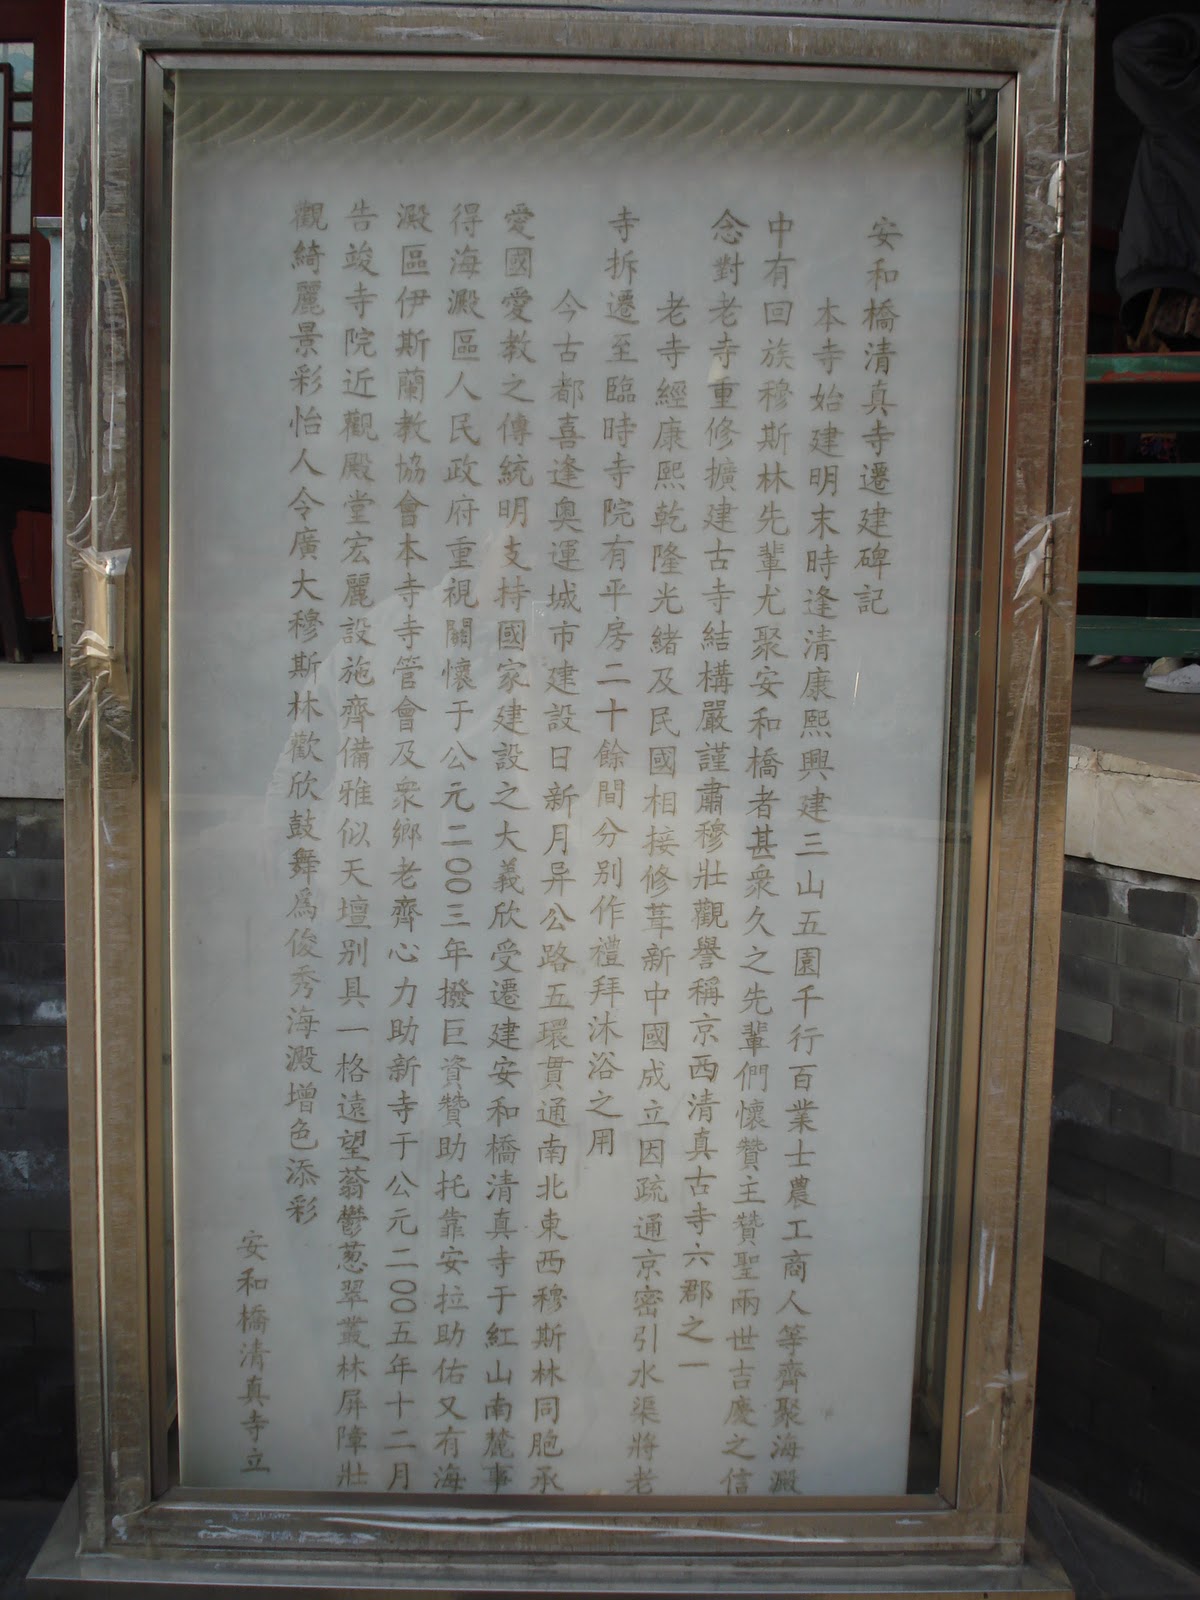 安和橋清真寺遷建碑記
本寺始建明末時逢清康熙興建三山五園千行百業士農工商人等齊聚海澱
中有回族穆斯林先輩尤聚安和橋者甚衆久之先輩們懷贊主贊聖兩世吉慶之信
念對老寺重修擴建古寺結構嚴謹肅穆壯觀譽稱京西清真古寺六郡之一
老寺經康熙乾隆光緒及民國相接修葺新中國成立因疏通京密引水渠將老
寺拆遷至臨時寺院有平房二十餘間分别作禮拜沐浴之用
今古都喜逢奥運城市建設日新月异公路五環貫通南北東西穆斯林同胞承
愛國愛教之傳統明支持國家建設之大義欣受遷建安和橋清真寺于紅山南麓事
得海澱區人民政府重視關懷于公元二00三年撥巨資贊助托靠安拉助佑又有海
澱區伊斯蘭教協會本寺寺管會及衆鄉老齊心力助新寺于公元二00五年十二月
告竣寺院近觀殿堂宏麗設施齊備雅似天壇别具一格遠望蓊鬱葱翠叢林屏障壯
觀綺麗景彩怡人令廣大穆斯林歡欣鼓舞爲俊秀海澱增色添彩
安和橋清真寺立